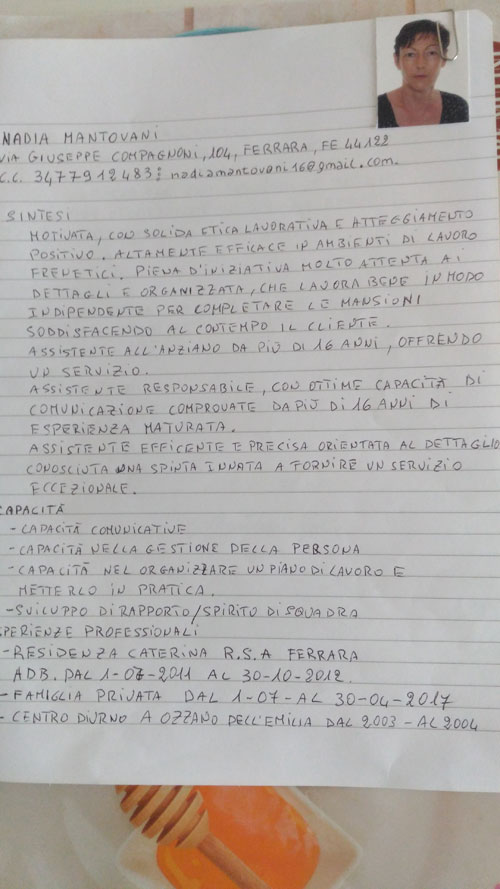 NADIA MANTOVANI
VIA GIUSEPPE COMPAGNONI, 104, FERRARA, FE 44122
C.C. 3477912483: nadiamantovani16@gmail.com.
SINTESI
MOTIVATA, CON SOLIDA ETICA LAVORATIVA E ATTEGGIAMENTO
POSITIVO. ALTAMENTE EFFICACE IN AMBIENTI DI LAVORO
FRENETICI. PIENA D'INIZIATIVA MOLTO ATTENTA AI
DETTAGLI E ORGANIZZATA, CHE LAVORA BENE IN MODO
INDIPENDENTE PER COMPLETARE LE MANSIONI
SODDISFACENDO AL CONTEMPO IL CLIENTE.
ASSISTENTE ALL'ANZIANO DA PIÙ DI 16 ANNI, OFFRENDO
UN SERVIZIO.
ASSISTENTE RESPONSABILE, CON OTTIME CAPACITÀ DI
COMUNICAZIONE COMPROVATE DA PIÙ DI 16 ANNI DI
ESPERIENZA MATURATA.
ASSISTENTE EFFICENTE E PRECISA ORIENTATA AL DETTAGLIO
CONOSCIUTA UNA SPINTA INNATA A FORNIRE UN SERVIZIO
ECCEZIONALE.
CAPACITÀ
- CAPACITÀ COMUNICATIVE
- CAPACITÀ NELLA GESTIONE DELLA PERSONA
- CAPACITÀ NEL ORGANIZZARE UN PIANO DI LAVORO E
METTERLO IN PRATICA.
- SVILUPPO DI RAPPORTO/SPIRITO DI SQUADRA
SPERIENZE PROFESSIONALI
- RESIDENZA CATERINA R.S.A FERRARA
ADB. DAL 1-07-2011 AL 30-10-2012.
- FAMIGLIA PRIVATA DAL 1-07-AL 30-04-2017
- CENTRO DIURNO A OZZANO DELL'EMILIA DAL 2003 - AL 2004